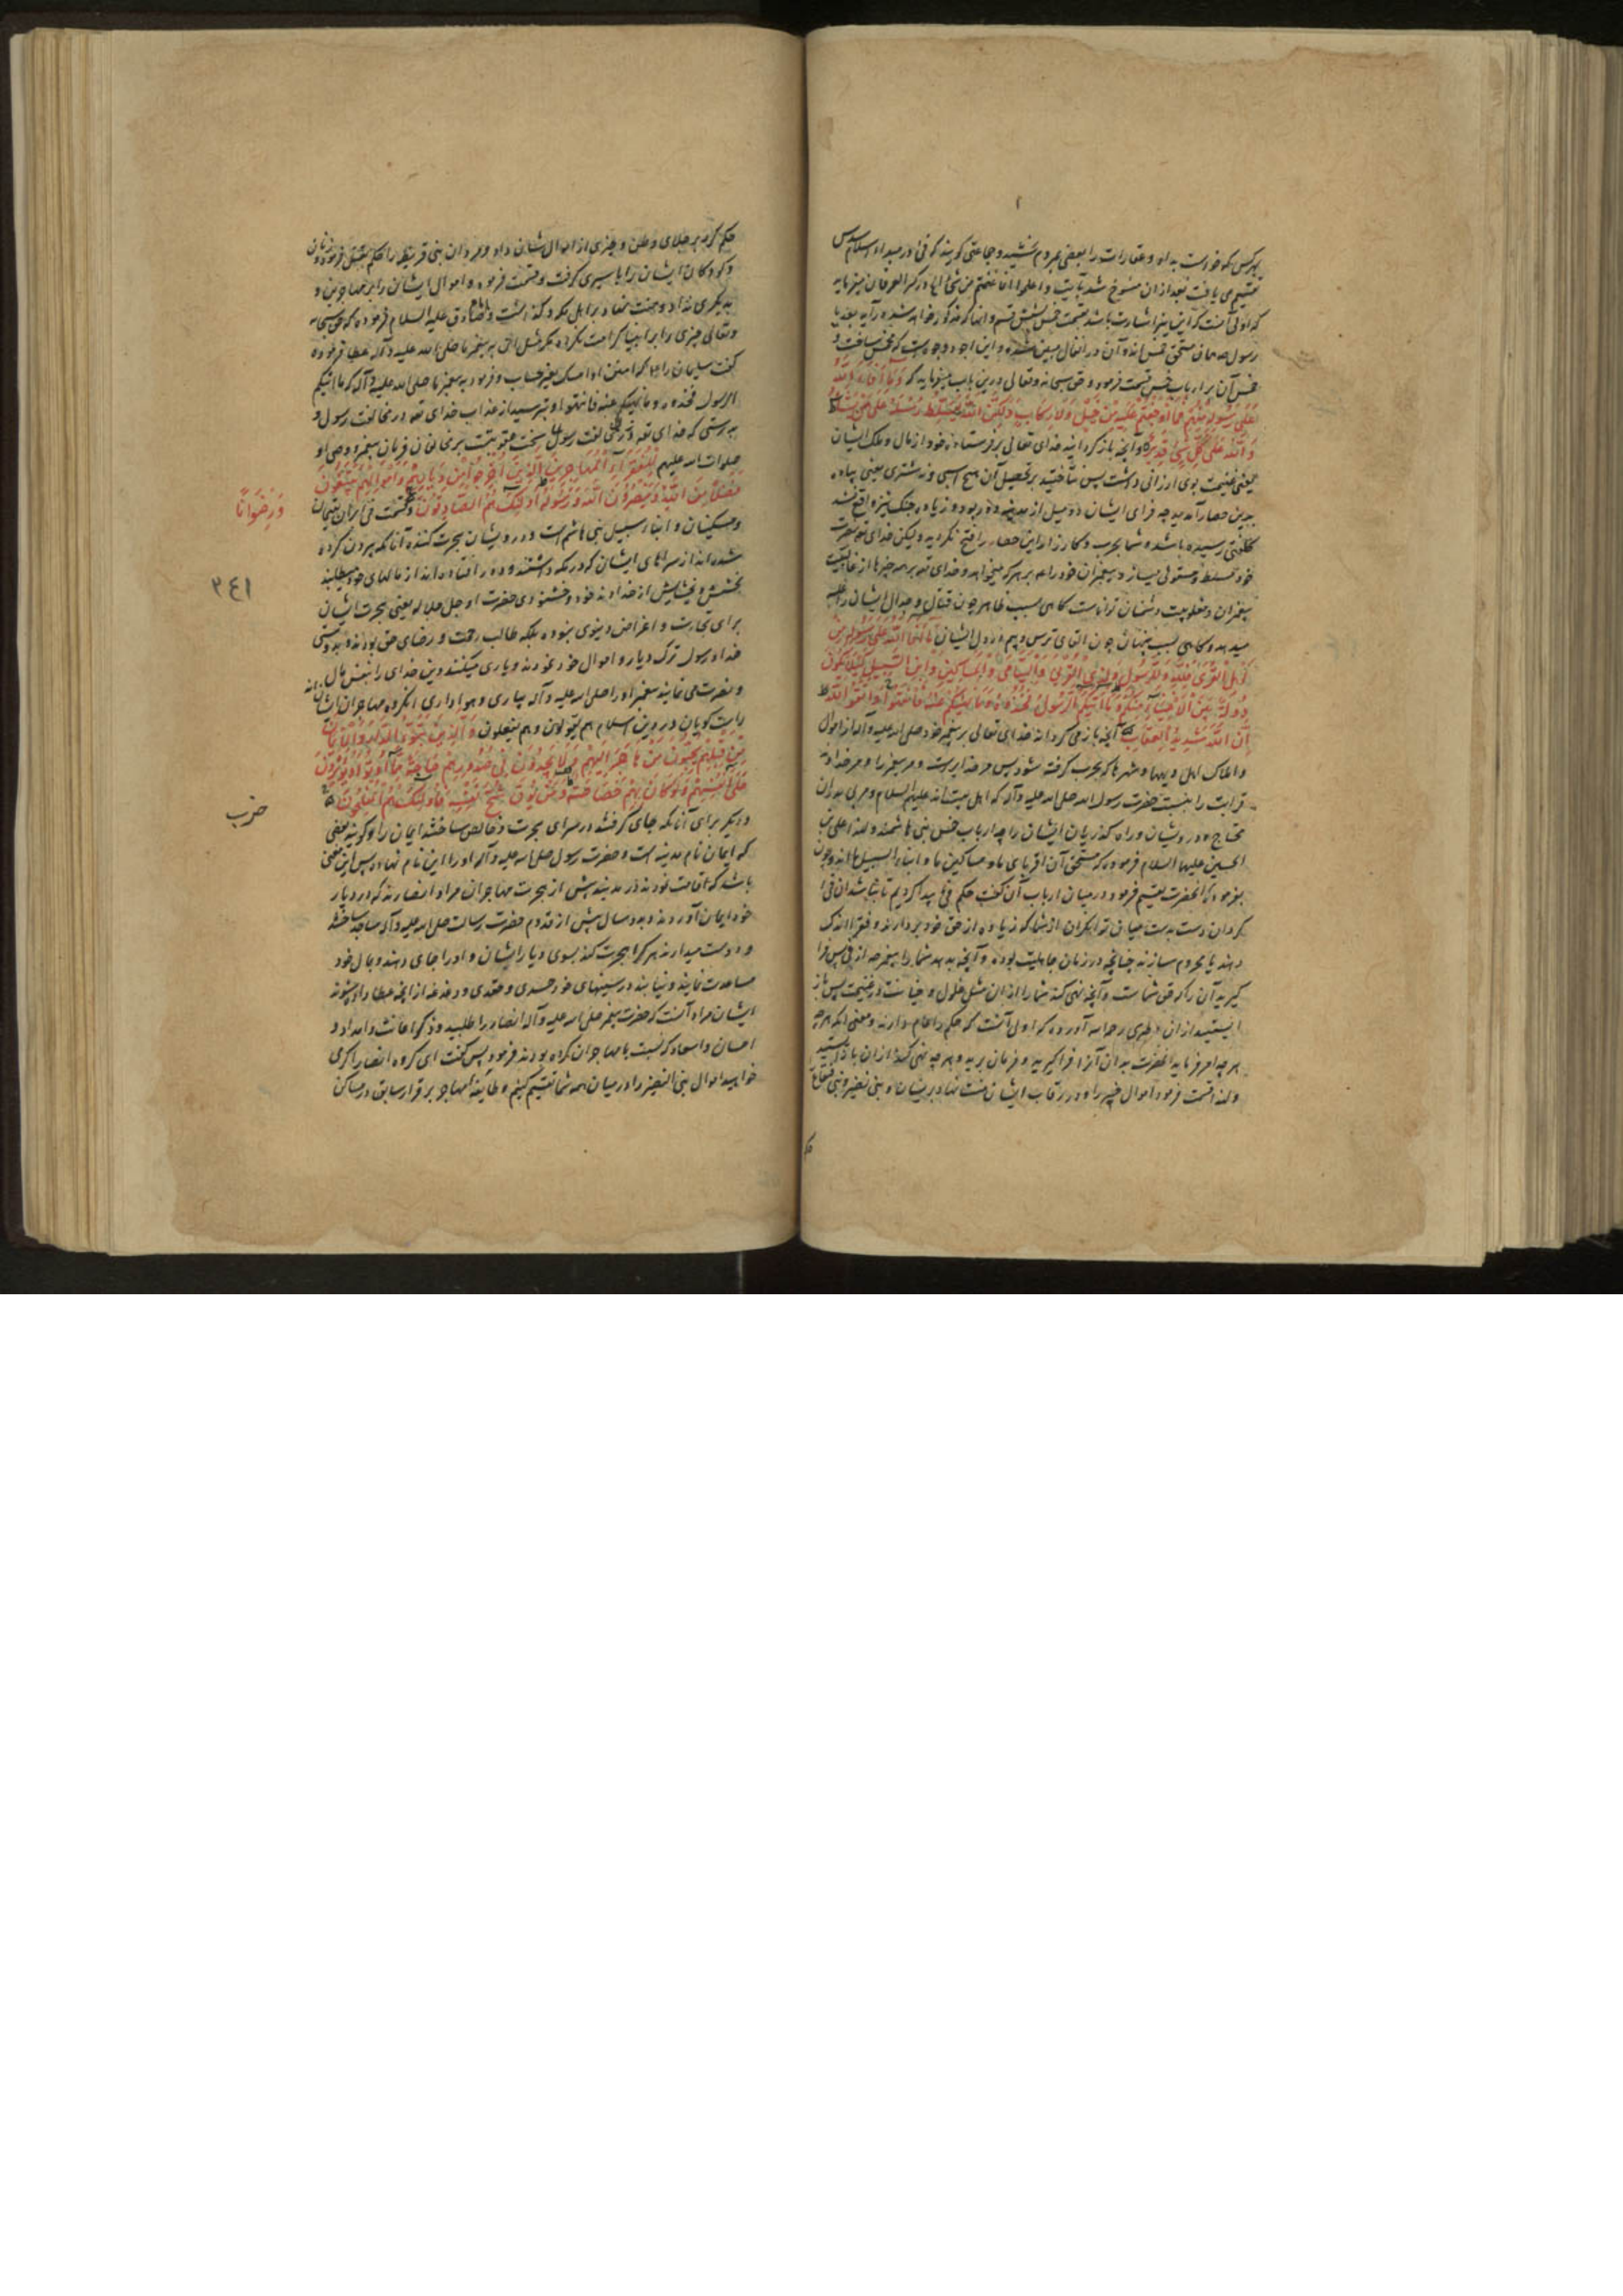 بهر کس که خواست بداد و عقارات را ببعضی مردم بخشید و جماعتی گویند که فی در مبداء اسلام
تقسیم می یافت بعد ازان منسوخ شد بآیت واعلموا انما غنمتم من شیء
که اولی آنست که این نیز اشارت باشد بقسمت خمس بشش قسم
رسول همان مستحق خمس اند و آن در انفال مبین شده و این
خمس آن بر ارباب خمس قسمت فرموده و حق سبحانه وتعالی درین باب میفرماید که وَمَا أَفَاءَ اللَّهُ
عَلَى رَسُولِهِ مِنْهُمْ فَمَا أَوْجَفْتُمْ عَلَيْهِ مِنْ خَيْلٍ وَلَا رِكَابٍ وَلَكِنَّ اللَّهَ يُسَلِّطُ رُسُلَهُ عَلَى مَنْ يَشَاءُ
وَاللَّهُ عَلَى كُلِّ شَيْءٍ قَدِيرٌ و آنچه بازگردانید خدای تعالی بر فرستاده خود از مال و ملک ایشان
یعنی غنیمت بوی ارزانی داشت پس نتاختید بر تحصیل آن هیچ اسبی و نه شتری یعنی پیاده
بدین حصار آمدید چه قرای ایشان تا دو میل از مدینه دور بود و زیاده جنگ نیز واقع نشد
کلفتی رسیده باشد و شما بحرب و کارزار این حصار را فتح نکردید ولیکن خدای تعالی
خود مسلط و مستولی میسازد پیغمبران خود را بر هر که میخواهد و خدای تعالی بر همه چیزها از غالبیت
پیغمبران و مغلوبیت دشمنان تواناست گاهی بسبب ظاهر چون قتال و جدال ایشان را غلبه
میدهد و گاهی بسبب پنهان چون القای ترس و بیم در دل ایشان مَا أَفَاءَ اللَّهُ عَلَى رَسُولِهِ مِنْ
أَهْلِ الْقُرَى فَلِلَّهِ وَلِلرَّسُولِ وَلِذِي الْقُرْبَى وَالْيَتَامَى وَالْمَسَاكِينِ وَابْنِ السَّبِيلِ كَيْ لَا يَكُونَ
دُولَةً بَيْنَ الْأَغْنِيَاءِ مِنْكُمْ وَمَا آتَاكُمُ الرَّسُولُ فَخُذُوهُ وَمَا نَهَاكُمْ عَنْهُ فَانْتَهُوا وَاتَّقُوا اللَّهَ
إِنَّ اللَّهَ شَدِيدُ الْعِقَابِ آنچه باز می گرداند خدای تعالی بر پیغمبر خود صلی الله علیه وآله از اموال
و املاک اهل دیهها و شهرها که بحرب گرفته نشود پس مر خدایراست و مر پیغمبر را و مر خداوند
قرابت را بنسبت حضرت رسول الله صلی الله علیه وآله که اهل بیت اند علیهم السلام و مر بی پدران
محتاج و درویشان و راه گذریان ایشان را چه ارباب خمس بنی هاشمند و لهذا علی بن
الحسین علیهما السلام فرموده که مستحق آن اقربای ما و مساکین ما و ابناء السبیل ما اند و چون
بفرموده آنحضرت تقسیم فرمود در میان ارباب آن گفت حکم فی پیدا کردیم تا نباشد آن فی
گردان دست بدست میان توانگران از شما که زیاده از حق خود بردارند و فقرا را اندک
دهند یا محروم سازند چنانچه در زمان جاهلیت بوده و آنچه بدهد شما را پیغمبر از فی پس فرا
گیرید آن را که حق شماست و آنچه نهی کند شما را از آن مثل غلول و خیانت در غنیمت پس باز
ایستید ازان طبری رحمه الله آورده که اولی آنست که حکم را عام دارند و معنی آنکه هرچه
هر چه امر فرماید آنحضرت بدان آنرا فرا گیرید و فرمان برید و هر چه نهی کند ازان باز ایستید
ولهذا قسمت فرمود اموال خیبر را و در رقاب ایشان منت نهاد بر ایشان و بنی نضیر و بنی قینقاع
حکم کرد بر جلای وطن و چیزی از اموال بایشان داد و مردان بنی قریظه را حکم بقتل فرمود و زنان
و کودکان ایشان را باسیری گرفت و قسمت فرمود و اموال ایشان را بر مهاجرین و
بدیگری نداد و منت نهاد بر اهل مکه و گذاشت و امام صادق علیه السلام فرموده که حق سبحانه
وتعالی چیزی را بر انبیا کرامت نکرده مگر مثل آن بر پیغمبر ما صلی الله علیه وآله عطا فرموده
گفت سلیمان را فامنن او امسک بغیر حساب و فرمود به پیغمبر ما صلی الله علیه وآله که ما آتیکم
الرسول فخذوه وما نهیکم عنه فانتهوا و بترسید از عذاب خدای تعالی در مخالفت رسول او
بدرستی که خدای تعالی در مخالفت رسول سخت عقوبتست بر مخالفان فرمان پیغمبر و وصی او
صلوات الله علیهم لِلْفُقَرَاءِ الْمُهَاجِرِينَ الَّذِينَ أُخْرِجُوا مِنْ دِيَارِهِمْ وَأَمْوَالِهِمْ يَبْتَغُونَ
فَضْلًا مِنَ اللَّهِ وَيَنْصُرُونَ اللَّهَ وَرَسُولَهُ أُولَئِكَ هُمُ الصَّادِقُونَ و قسمت فی از برای یتیمان
وَرِضْوَانًا
و مسکینان و ابناء سبیل بنی هاشم است و درویشان هجرت کننده آنانکه بیرون کرده
شده اند از سراهای ایشان که در مکه داشتند و دور افتاده اند از مالهای خود میطلبند
٢٤١
بخشش و بخشایش از خداوند خود و خشنودی حضرت او جل جلاله یعنی هجرت ایشان
برای تجارت و اغراض دنیوی نبوده بلکه طالب رحمت و رضای حق بودند و بدوستی
خدا و رسول ترک دیار و اموال خود نمودند و یاری میکنند دین خدای را بنفس و مال
و نصرت می نمایند پیغمبر او را صلی الله علیه وآله بیاری و هواداری آنگروه مهاجران ایشانند
راست گویان در دین اسلام هم یقولون و هم یفعلون وَالَّذِينَ تَبَوَّءُوا الدَّارَ وَالْإِيمَانَ
مِنْ قَبْلِهِمْ يُحِبُّونَ مَنْ هَاجَرَ إِلَيْهِمْ وَلَا يَجِدُونَ فِي صُدُورِهِمْ حَاجَةً مِمَّا أُوتُوا وَيُؤْثِرُونَ
عَلَى أَنْفُسِهِمْ وَلَوْ كَانَ بِهِمْ خَصَاصَةٌ وَمَنْ يُوقَ شُحَّ نَفْسِهِ فَأُولَئِكَ هُمُ الْمُفْلِحُونَ
حزب
و دیگر برای آنانکه جای گرفتند در سرای هجرت و خالص ساختند ایمان را و گویند یعنی
که ایمان نام مدینه است و حضرت رسول صلی الله علیه وآله او را این نام نهاده پس این معنی
باشد که اقامت نمودند در مدینه پیش از هجرت مهاجران مراد انصارند که در دیار
خود ایمان آوردند و بدو سال پیش از قدوم حضرت رسالت صلی الله علیه وآله مساجد ساختند
و دوست میدارند هر که را هجرت کند بسوی دیار ایشان و او را جای دهند و بمال خود
مساعدت نمایند و نیابند در سینهای خود حسدی و حقدی و دغدغه از آنچه عطا داده شوند
ایشان مراد آنست که حضرت پیغمبر صلی الله علیه وآله انصار را طلبید و ذکر اعانت و امداد و
احسان و اسعاد که نسبت با مهاجران کرده بودند فرمود پس گفت ای گروه انصار اگر می
خواهید اموال بنی النضیر را در میان همه شما تقسیم کنیم و طایفه مهاجر بر قرار سابق در مساکن